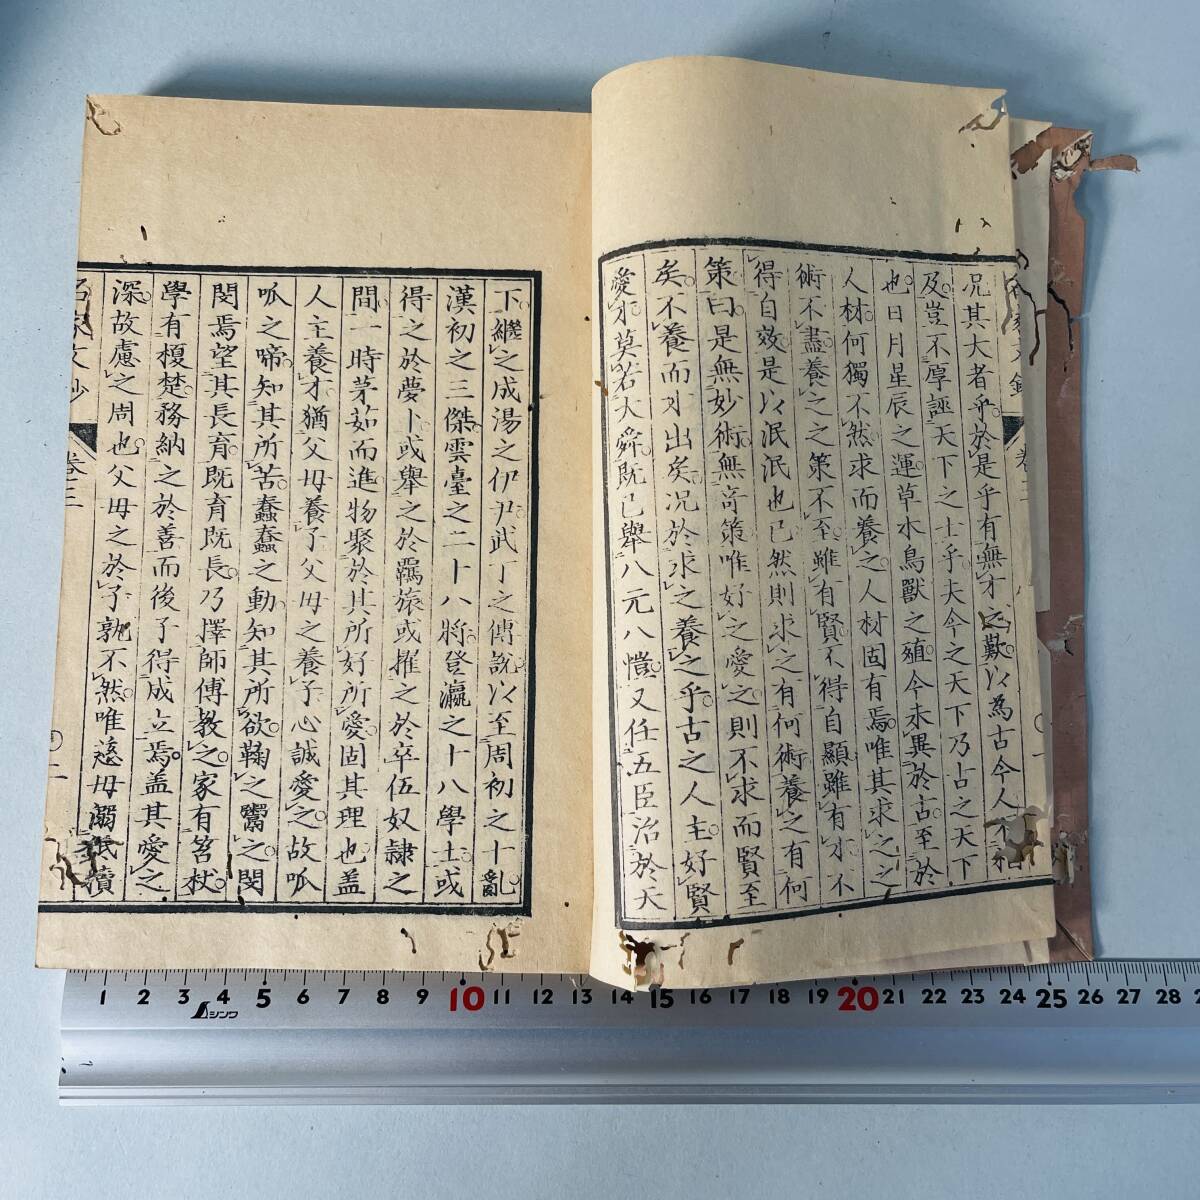 況其大者乎於是乎有無才之歎以為古今人不相
及豈不厚誣天下之士乎夫今之天下乃古之天下
也日月星辰之運草水鳥獸之殖今未異於古至於
人材何獨不然求而養之人材固有焉唯其求之之
術不盡養之之策不至雖有賢不得自顯雖有才不
得自效是以泯泯也已然則求之有何術養之有何
策曰是無妙術無奇策唯好之愛之則不求而賢至
矣不養而才出矣况於求之養之乎古之人主好賢
愛才莫若大舜既已舉八元八愷又任五臣治於天
下繼之成湯之伊尹武丁之傅說以至周初之十亂
漢初之三傑雲臺之二十八將登瀛之十八學士或
得之於夢卜或舉之於羈旅或擢之於卒伍奴隷之
間一時茅茹而進物聚於其所好所愛固其理也蓋
人主養才猶父母養子父母之養子心誠愛之故呱
呱之啼知其所苦蠢蠢之動知其所欲鞠之鬻之閔
閔焉望其長育既育既長乃擇師傅教之家有笞杖
學有榎楚務納之於善而後子得成立焉盖其愛之
深故慮之周也父母之於子孰不然唯慈母溺
名家文抄
卷三
二
卷三
シンワ
1 2 3 4 5 6 7 8 9 10 11 12 13 14 15 16 17 18 19 20 21 22 23 24 25 26 27 28